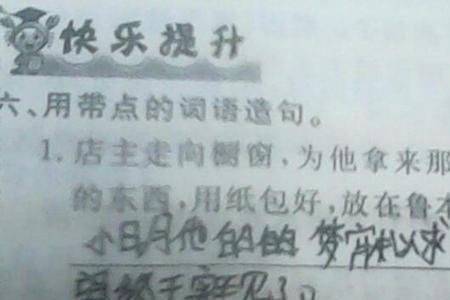 快乐提升
六、用带点的词语造句。
1.店主走向橱窗，为他拿来那
的东西，用纸包好，放在鲁本
小明他的梦
终于实现了。